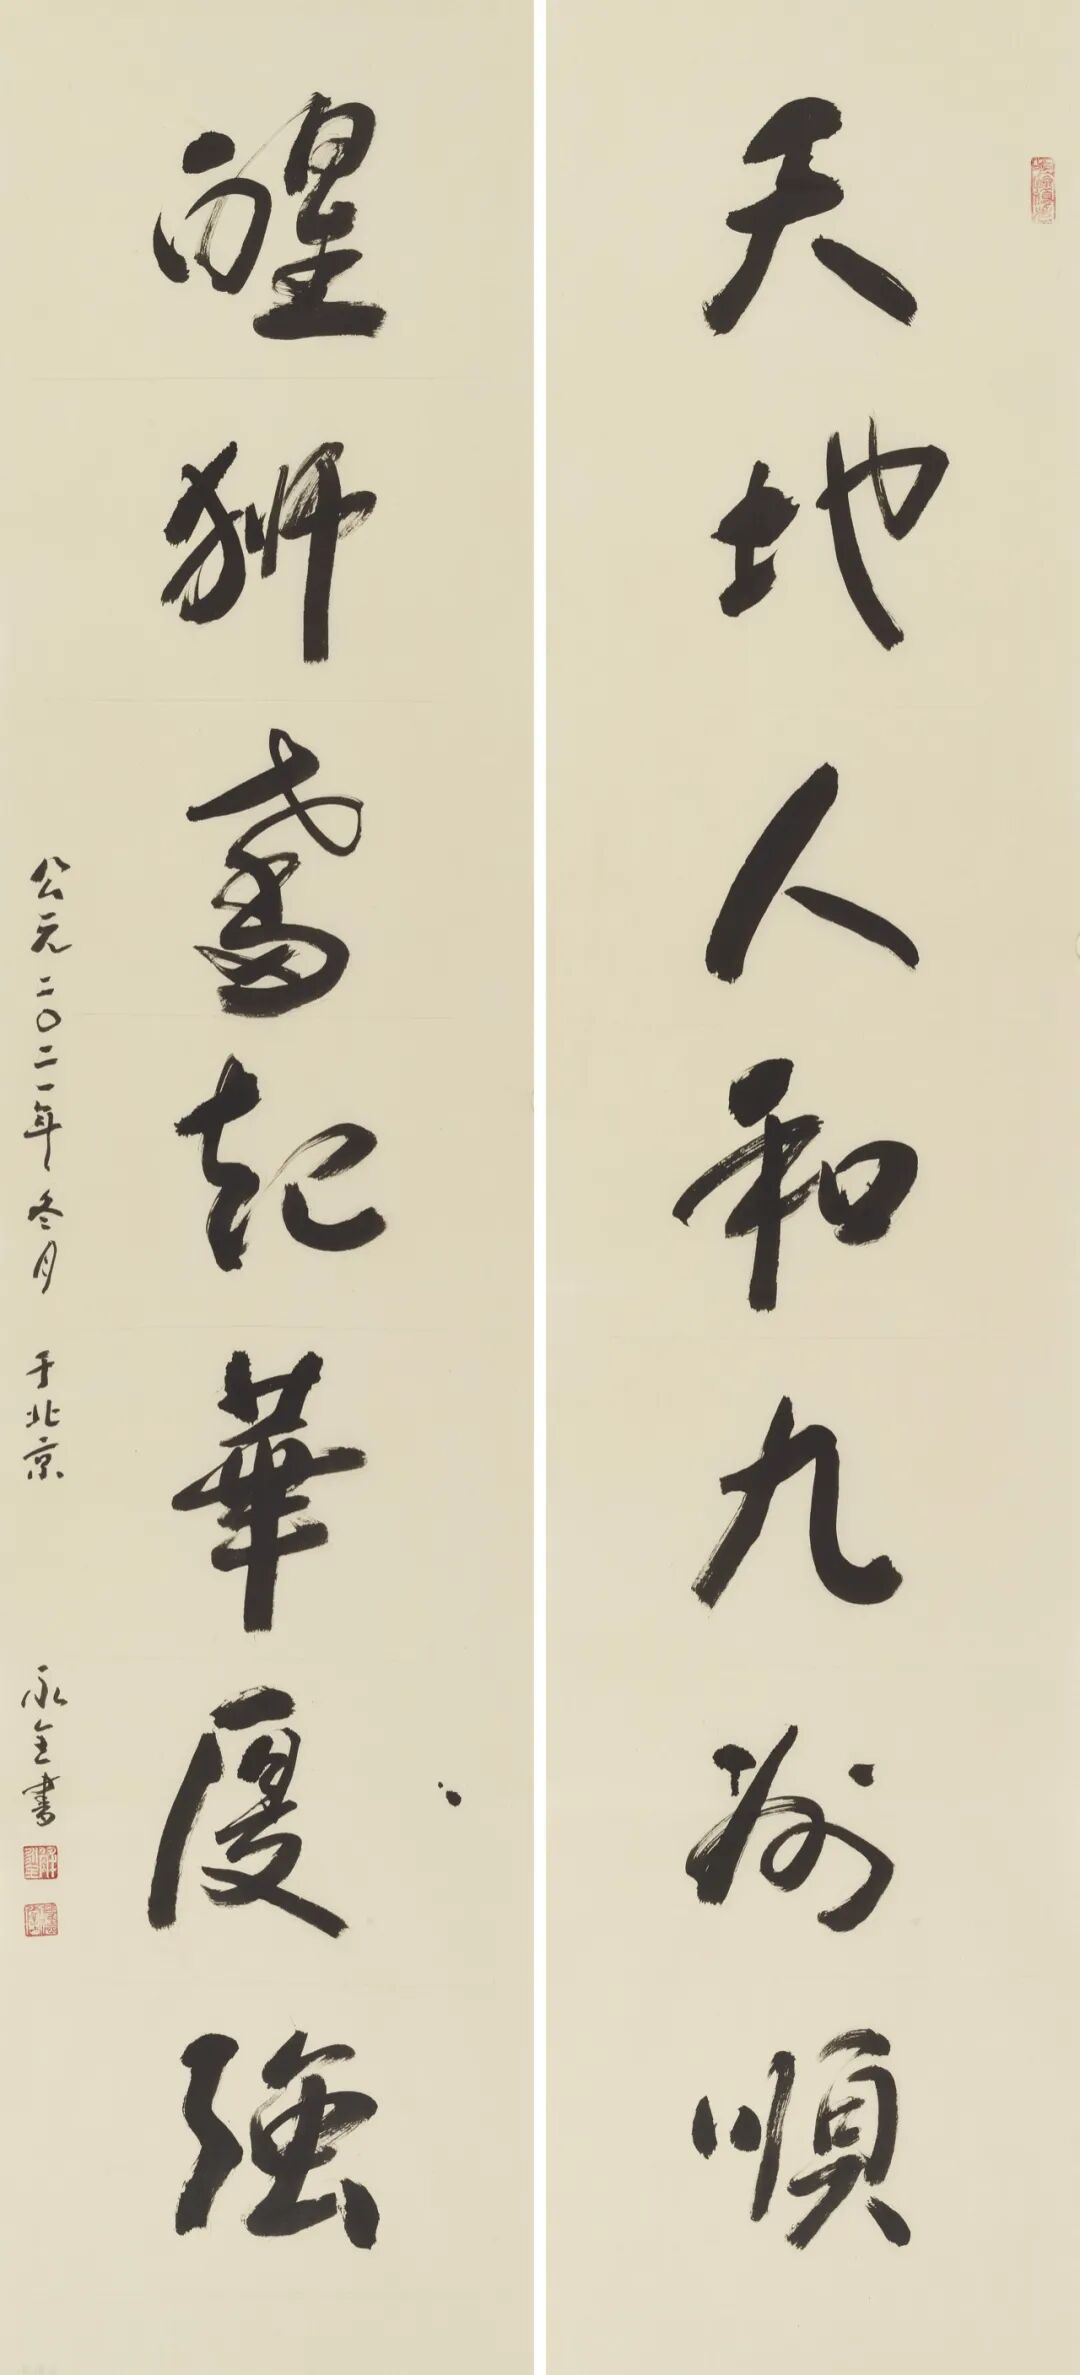 天地人和九州順
醒獅奮起華夏強
公元二〇二一年冬月 于北京 永全書